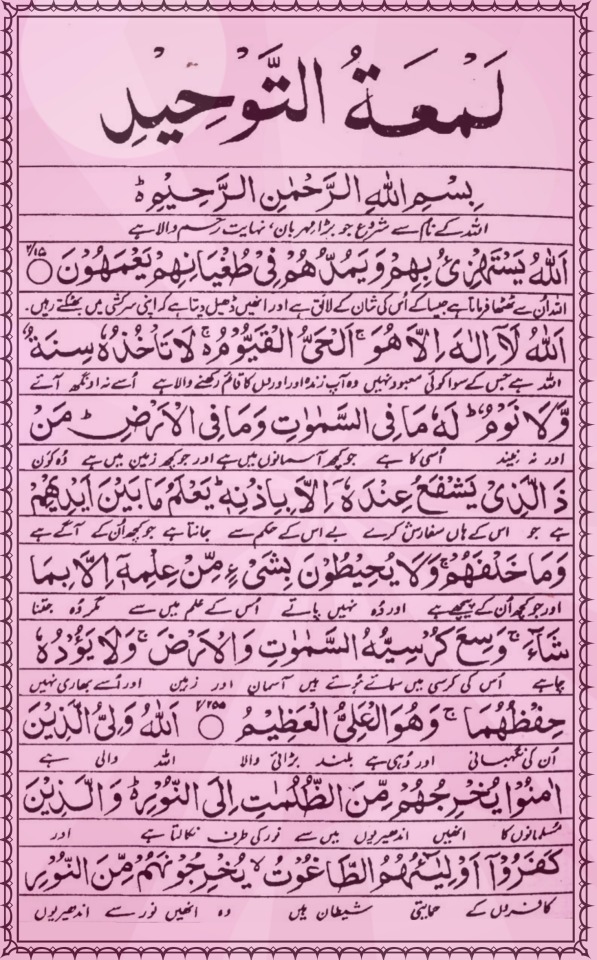 لَمْعَةُ التَّوْحِيْدِ
بِسْمِ اللهِ الرَّحْمٰنِ الرَّحِيْمِ ط
اللہ کے نام سے شروع جو بڑا مہربان، نہایت رحم والا ہے
اَللهُ يَسْتَهْزِئُ بِهِمْ وَيَمُدُّهُمْ فِيْ طُغْيَانِهِمْ يَعْمَهُوْنَ ○ ٢/١٥
اللہ اُن سے ٹھٹھا فرماتا ہے جیسا کے اُس کی شان کے لائق ہے اور انھیں ڈھیل دیتا ہے کہ اپنی سرکشی میں بھٹکتے رہیں.
اَللهُ لَآ اِلٰهَ اِلَّا هُوَ ج اَلْحَيُّ الْقَيُّوْمُ ە ج لَا تَاْخُذُهٗ سِنَةٌ
اللہ ہے جس کے سوا کوئی معبود نہیں وہ آپ زندہ اور اوروں کا قائم رکھنے والا ہے اُسے نہ اونگھ آئے
وَّلَا نَوْمٌ ط لَهٗ مَا فِي السَّمٰوٰتِ وَمَا فِي الْاَرْضِ ط مَنْ
اور نہ نیند اُسی کا ہے جو کچھ آسمانوں میں ہے اور جو کچھ زمین میں ہے وُہ کون
ذَا الَّذِيْ يَشْفَعُ عِنْدَهٗ اِلَّا بِاِذْنِهٖ ط يَعْلَمُ مَا بَيْنَ اَيْدِيْهِمْ
ہے جو اس کے ہاں سفارش کرے بے اس کے حکم سے جانتا ہے جو کچھ اُن کے آگے ہے
وَمَا خَلْفَهُمْ ج وَلَا يُحِيْطُوْنَ بِشَيْءٍ مِّنْ عِلْمِهٖٓ اِلَّا بِمَا
اور جو کچھ اُن کے پیچھے ہے اور وُہ نہیں پاتے اُس کے علم میں سے مگر وُہ جتنا
شَآءَ ج وَسِعَ كُرْسِيُّهُ السَّمٰوٰتِ وَالْاَرْضَ ج وَلَا يَؤُدُهٗ
چاہے اُس کی کرسی میں سمائے ہُوئے ہیں آسمان اور زمین اور اُسے بھاری نہیں
حِفْظُهُمَا ج وَهُوَ الْعَلِيُّ الْعَظِيْمُ ○ ٢/٢٥٥ اَللهُ وَلِيُّ الَّذِيْنَ
اُن کی نگہبانی اور وُہی ہے بلند بڑائی والا اللہ والی ہے
اٰمَنُوْا يُخْرِجُهُمْ مِّنَ الظُّلُمٰتِ اِلَى النُّوْرِ ط وَالَّذِيْنَ
مُسلمانوں کا انھیں اندھیریوں میں سے نور کی طرف نکالتا ہے اور
كَفَرُوْٓا اَوْلِيٰٓئُهُمُ الطَّاغُوْتُ لا يُخْرِجُوْنَهُمْ مِّنَ النُّوْرِ
کافروں کے حمایتی شیطان ہیں وہ انھیں نور سے اندھیریوں